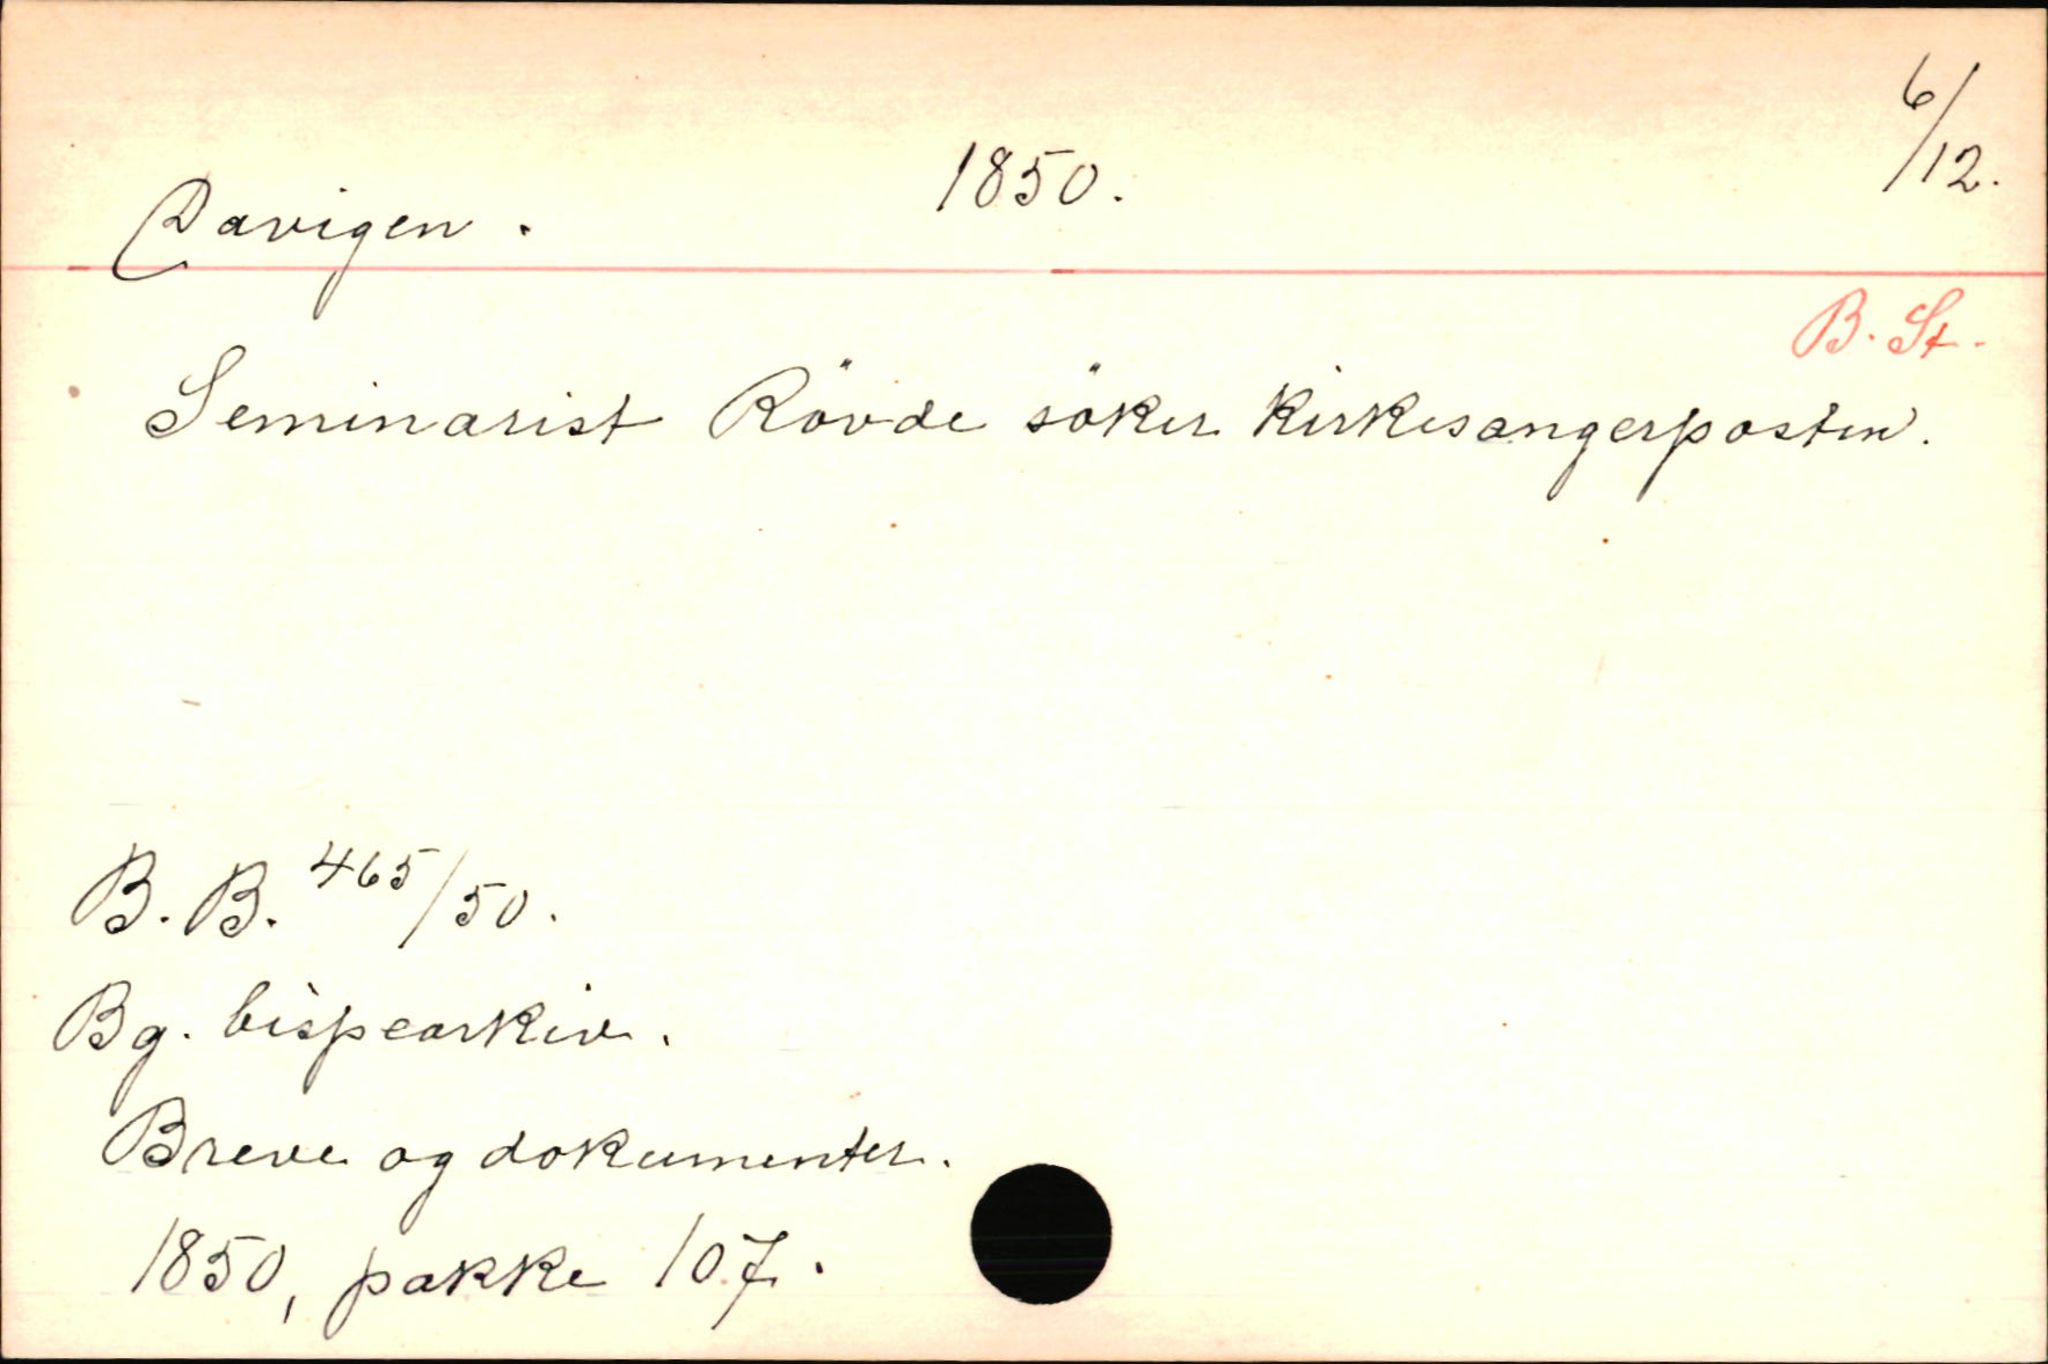 6/12.
1850.
Davigen.
B. St.
Seminarist Rövde söker kirkesangerposten.
B. B. 465/50.
Bg. bispearkiv.
Breve og dokumenter.
1850, pakke 107.